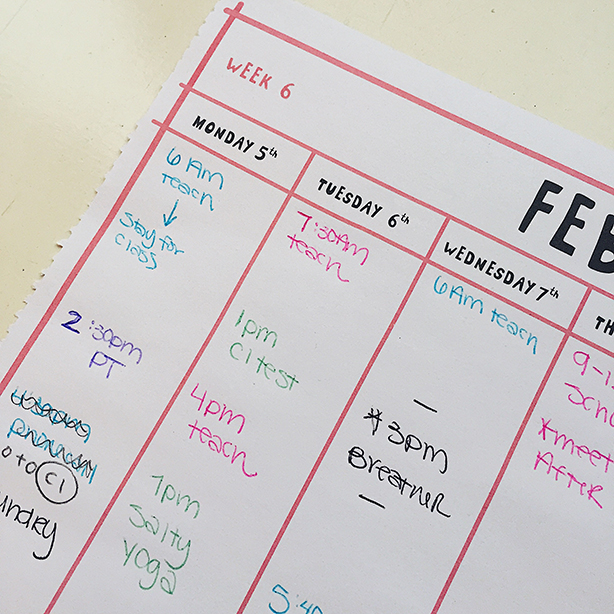 WEEK 6
FEB
MONDAY 5th
6 Am
teach
Stay for
class
2:30pm
PT
o to CI
undry
TUESDAY 6th
7:30Am
teach
1pm
CI test
4pm
teach
7pm
Salty
Yoga
WEDNESDAY 7th
6 Am teach
—
*3pm
Breather
—
5:4
TH
9-1
Scho
*meet
After